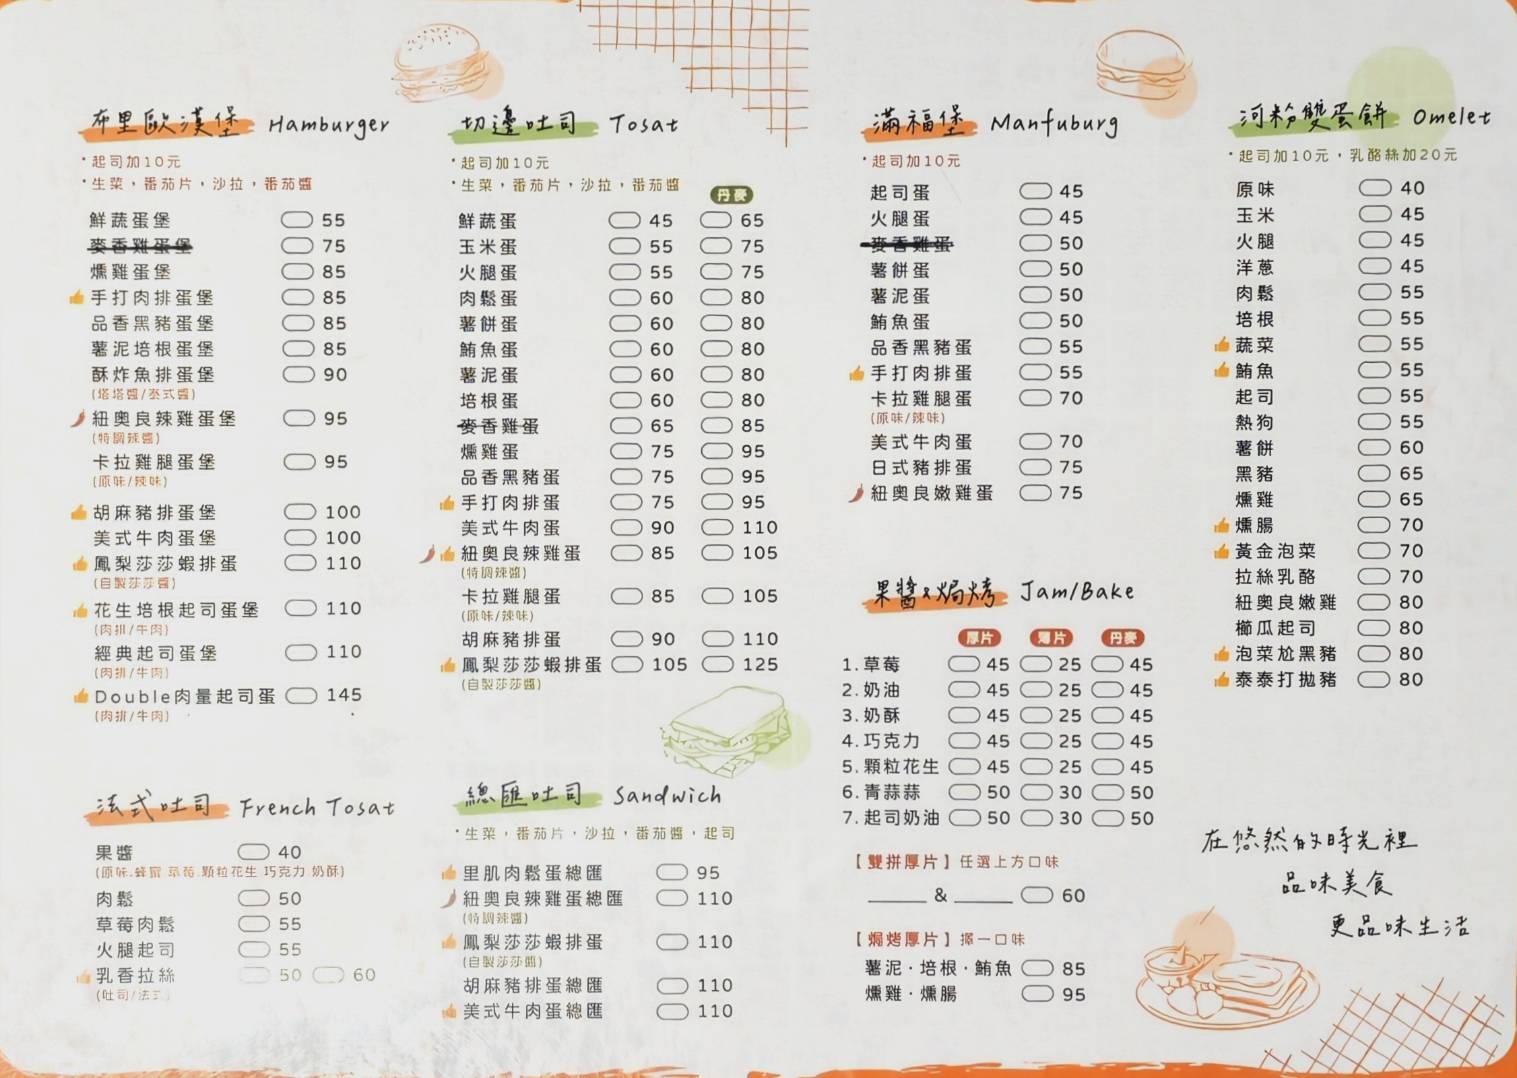 布里歐漢堡 Hamburger
·起司加10元
·生菜,番茄片,沙拉,番茄醬
鮮蔬蛋堡 55
麥香雞蛋堡 75
燻雞蛋堡 85
手打肉排蛋堡 85
品香黑豬蛋堡 85
薯泥培根蛋堡 85
酥炸魚排蛋堡 90
(塔塔醬/泰式醬)
紐奧良辣雞蛋堡 95
(特調辣醬)
卡拉雞腿蛋堡 95
(原味/辣味)
胡麻豬排蛋堡 100
美式牛肉蛋堡 100
鳳梨莎莎蝦排蛋 110
(自製莎莎醬)
花生培根起司蛋堡 110
(肉排/牛肉)
經典起司蛋堡 110
(肉排/牛肉)
Double肉量起司蛋 145
(肉排/牛肉)
法式吐司 French Tosat
果醬 40
(原味.蜂蜜 草莓.顆粒花生 巧克力 奶酥)
肉鬆 50
草莓肉鬆 55
火腿起司 55
乳香拉絲 50 60
(吐司/法式)
切邊吐司 Tosat
·起司加10元
·生菜,番茄片,沙拉,番茄醬
丹麥
鮮蔬蛋 45 65
玉米蛋 55 75
火腿蛋 55 75
肉鬆蛋 60 80
薯餅蛋 60 80
鮪魚蛋 60 80
薯泥蛋 60 80
培根蛋 60 80
麥香雞蛋 65 85
燻雞蛋 75 95
品香黑豬蛋 75 95
手打肉排蛋 75 95
美式牛肉蛋 90 110
紐奧良辣雞蛋 85 105
(特調辣醬)
卡拉雞腿蛋 85 105
(原味/辣味)
胡麻豬排蛋 90 110
鳳梨莎莎蝦排蛋 105 125
(自製莎莎醬)
總匯吐司 Sandwich
·生菜,番茄片,沙拉,番茄醬,起司
里肌肉鬆蛋總匯 95
紐奧良辣雞蛋總匯 110
(特調辣醬)
鳳梨莎莎蝦排蛋 110
(自製莎莎醬)
胡麻豬排蛋總匯 110
美式牛肉蛋總匯 110
滿福堡 Manfuburg
·起司加10元
起司蛋 45
火腿蛋 45
麥香雞蛋 50
薯餅蛋 50
薯泥蛋 50
鮪魚蛋 50
品香黑豬蛋 55
手打肉排蛋 55
卡拉雞腿蛋 70
(原味/辣味)
美式牛肉蛋 70
日式豬排蛋 75
紐奧良嫩雞蛋 75
果醬&焗烤 Jam/Bake
厚片 薄片 丹麥
1.草莓 45 25 45
2.奶油 45 25 45
3.奶酥 45 25 45
4.巧克力 45 25 45
5.顆粒花生 45 25 45
6.青蒜蒜 50 30 50
7.起司奶油 50 30 50
【雙拼厚片】任選上方口味
______ & ______ 60
【焗烤厚片】擇一口味
薯泥·培根·鮪魚 85
燻雞·燻腸 95
河粉雙蛋餅 Omelet
·起司加10元,乳酪絲加20元
原味 40
玉米 45
火腿 45
洋蔥 45
肉鬆 55
培根 55
蔬菜 55
鮪魚 55
起司 55
熱狗 55
薯餅 60
黑豬 65
燻雞 65
燻腸 70
黃金泡菜 70
拉絲乳酪 70
紐奧良嫩雞 80
櫛瓜起司 80
泡菜尬黑豬 80
泰泰打拋豬 80
在悠然的時光裡
品味美食
更品味生活